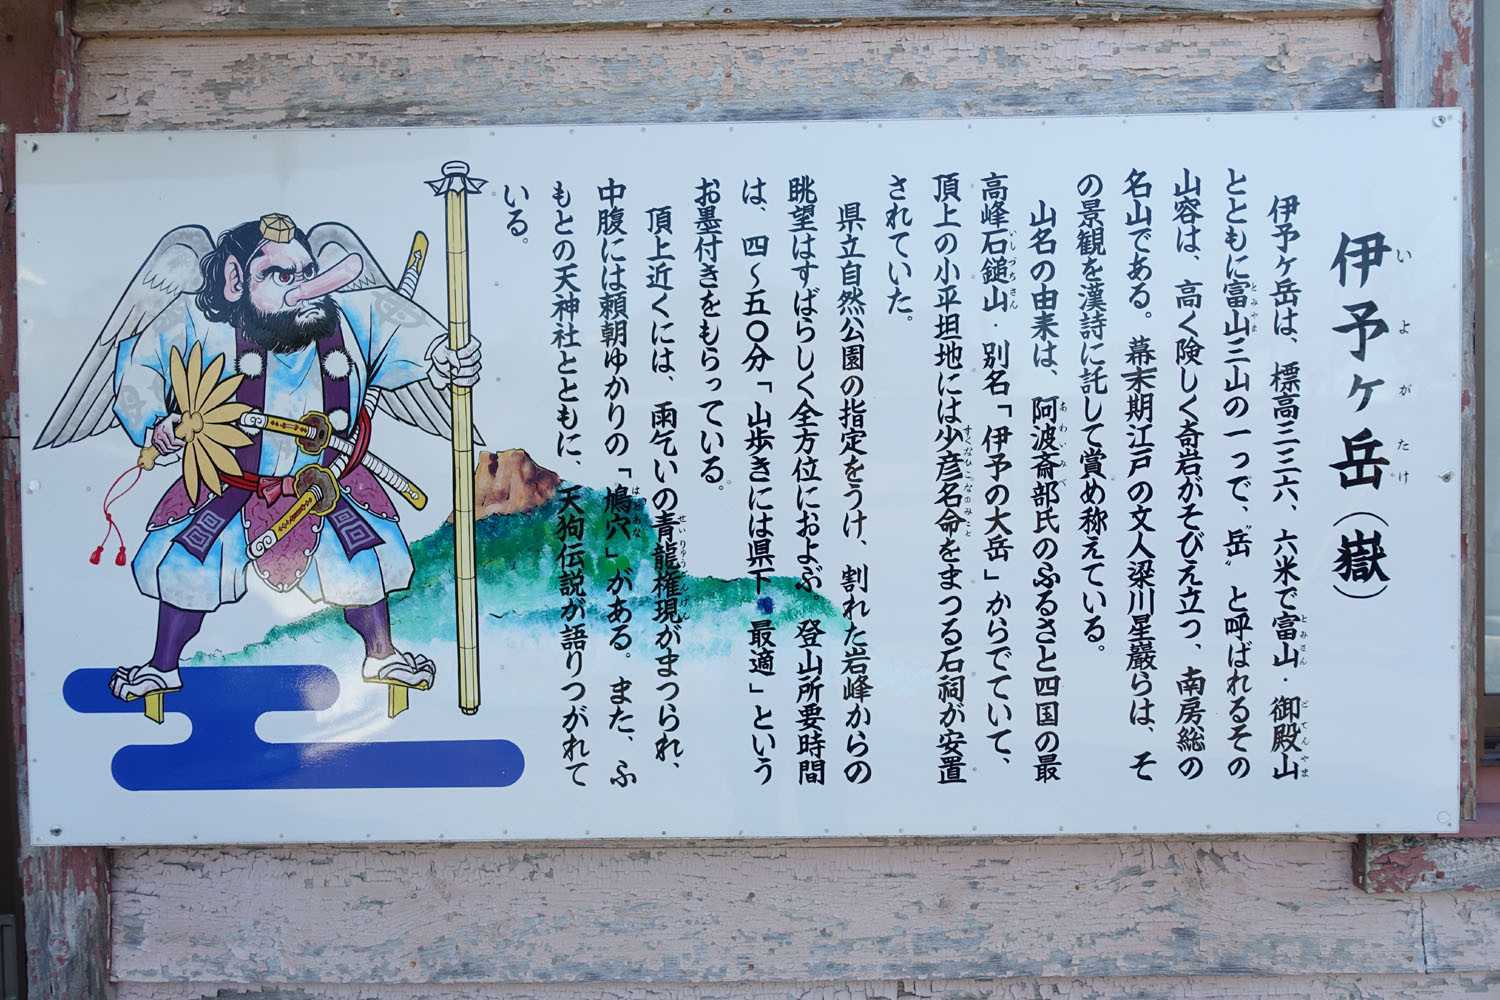 伊予ヶ岳（嶽）
いよがたけ
伊予ヶ岳は、標高三三六、六米で富山・御殿山
とみさん ごてんやま
とともに富山三山の一つで、〝岳〟と呼ばれるその
とみやま
山容は、高く険しく奇岩がそびえ立つ、南房総の
名山である。幕末期江戸の文人梁川星巖らは、そ
の景観を漢詩に託して賞め称えている。
山名の由来は、阿波斎部氏のふるさと四国の最
あわいみべ
高峰石鎚山・別名「伊予の大岳」からでていて、
いしづちさん
頂上の小平坦地には少彦名命をまつる石祠が安置
すくなひこなのみこと
されていた。
県立自然公園の指定をうけ、割れた岩峰からの
眺望はすばらしく全方位におよぶ、登山所要時間
は、四〜五〇分「山歩きには県下、最適」という
お墨付きをもらっている。
頂上近くには、雨乞いの青龍権現がまつられ、
せいりゅうごんげん
中腹には頼朝ゆかりの「鳩穴」がある。また、ふ
はとあな
もとの天神社とともに、天狗伝説が語りつがれて
いる。